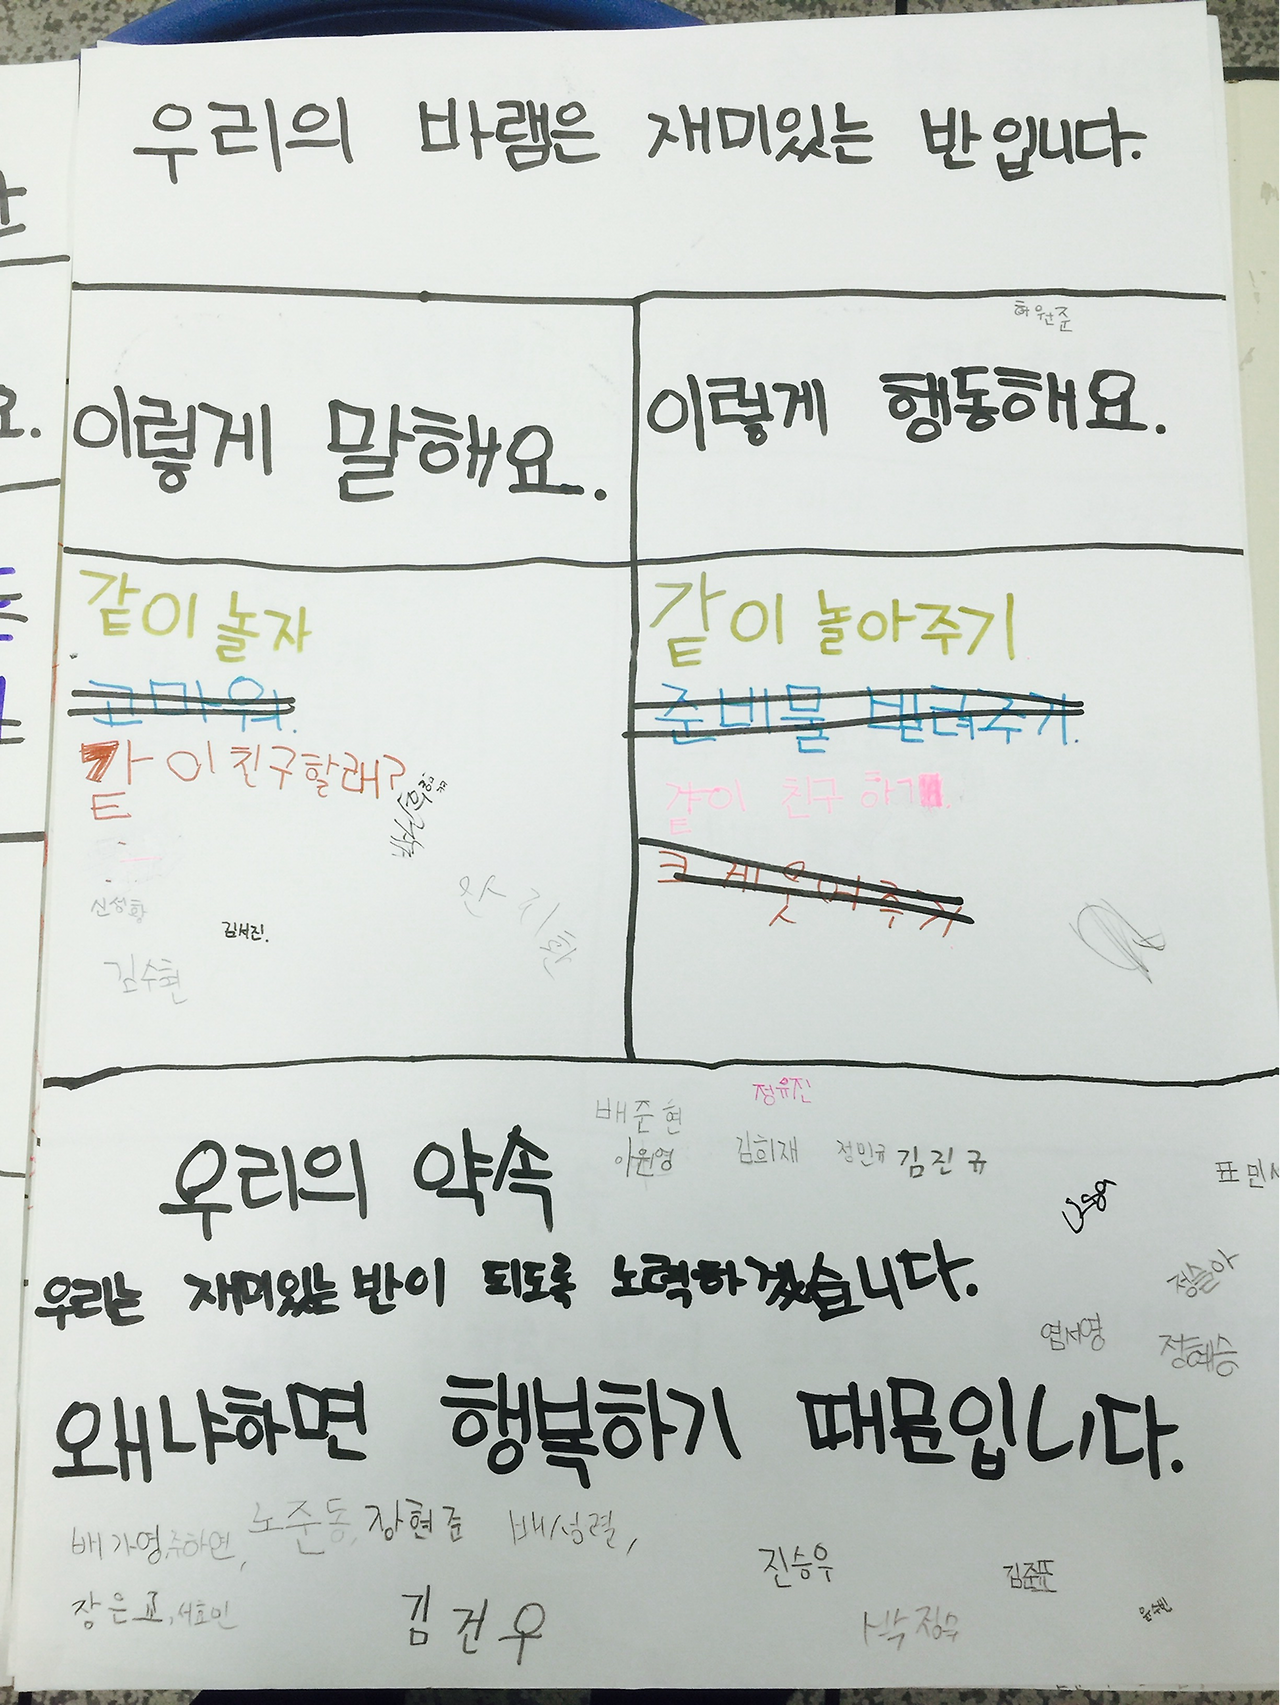 우리의 바램은 재미있는 반입니다.
허원준
이렇게 말해요.
이렇게 행동해요.
같이 놀자
고마워.
같이 친구할래?
신성황
김서진.
안지환
김수현
같이 놀아주기
준비물 빌려주기.
같이 친구 하기
크게 웃어주기
우리의 약속
배준현
정유진
이원영
김희재
정민규
김진규
표민서
우리는 재미있는 반이 되도록 노력하겠습니다.
정슬아
염서영
정혜승
왜냐하면 행복하기 때문입니다.
배가영, 주하연, 노준동, 장현준 배성렬,
진승우
김준표
장은교, 서효인
김건우
박정우
윤수빈